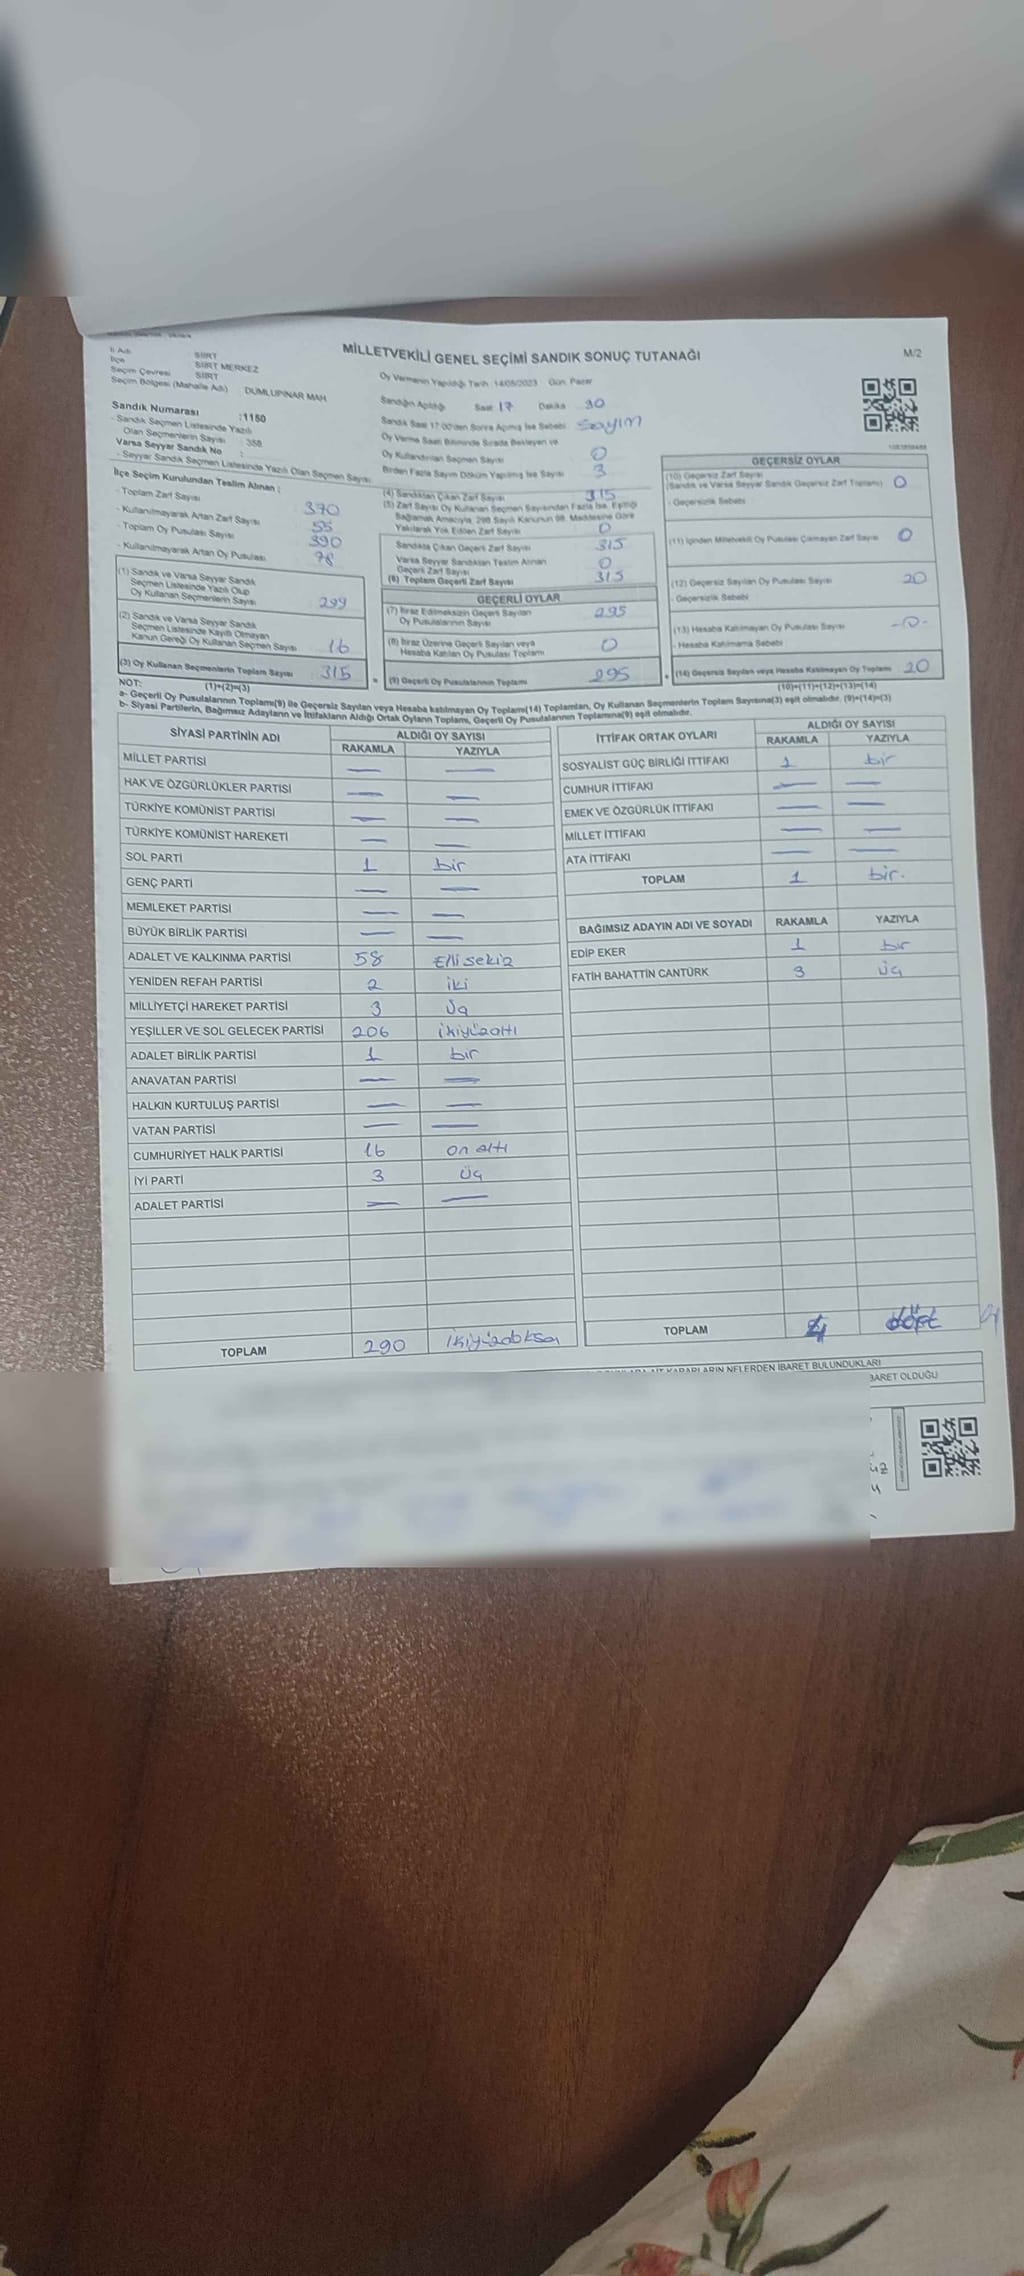 MİLLETVEKİLİ GENEL SEÇİMİ SANDIK SONUÇ TUTANAĞI
M/2
İl Adı SİİRT
İlçe SİİRT MERKEZ
Seçim Çevresi SİİRT
Seçim Bölgesi (Mahalle Adı) DUMLUPINAR MAH
Sandık Numarası :1160
- Sandık Seçmen Listesinde Yazılı
Olan Seçmenlerin Sayısı : 358
Varsa Seyyar Sandık No :
- Seyyar Sandık Seçmen Listesinde Yazılı Olan Seçmen Sayısı
İlçe Seçim Kurulundan Teslim Alınan :
- Toplam Zarf Sayısı 370
- Kullanılmayarak Artan Zarf Sayısı 55
- Toplam Oy Pusulası Sayısı 390
- Kullanılmayarak Artan Oy Pusulası 78
(1) Sandık ve Varsa Seyyar Sandık
Seçmen Listesinde Yazılı Olup
Oy Kullanan Seçmenlerin Sayısı 299
(2) Sandık ve Varsa Seyyar Sandık
Seçmen Listesinde Kayıtlı Olmayan
Kanun Gereği Oy Kullanan Seçmen Sayısı 16
(3) Oy Kullanan Seçmenlerin Toplam Sayısı 315
Oy Vermenin Yapıldığı Tarih :14/05/2023 Gün: Pazar
Sandığın Açıldığı Saat 17 Dakika 30
Sandık Saat 17:00'den Sonra Açılmış İse Sebebi Sayım
Oy Verme Saati Bitiminde Sırada Bekleyen ve
Oy Kullandırılan Seçmen Sayısı 0
Birden Fazla Sayım Döküm Yapılmış İse Sayısı 3
(4) Sandıktan Çıkan Zarf Sayısı 315
(5) Zarf Sayısı Oy Kullanan Seçmen Sayısından Fazla İse, Eşitliği
Sağlamak Amacıyla, 298 Sayılı Kanunun 98. Maddesine Göre
Yakılarak Yok Edilen Zarf Sayısı 0
Sandıkta Çıkan Geçerli Zarf Sayısı 315
Varsa Seyyar Sandıktan Teslim Alınan
Geçerli Zarf Sayısı 0
(6) Toplam Geçerli Zarf Sayısı 315
GEÇERLİ OYLAR
(7) İtiraz Edilmeksizin Geçerli Sayılan
Oy Pusulalarının Sayısı 295
(8) İtiraz Üzerine Geçerli Sayılan veya
Hesaba Katılan Oy Pusulası Toplamı 0
(9) Geçerli Oy Pusulalarının Toplamı 295
GEÇERSİZ OYLAR
(10) Geçersiz Zarf Sayısı
(Sandık ve Varsa Seyyar Sandık Geçersiz Zarf Toplamı) 0
- Geçersizlik Sebebi
(11) İçinden Milletvekili Oy Pusulası Çıkmayan Zarf Sayısı 0
(12) Geçersiz Sayılan Oy Pusulası Sayısı 20
- Geçersizlik Sebebi
(13) Hesaba Katılmayan Oy Pusulası Sayısı -0-
- Hesaba Katılmama Sebebi
(14) Geçersiz Sayılan veya Hesaba Katılmayan Oy Toplamı 20
NOT: (1)+(2)=(3) (10)+(11)+(12)+(13)=(14)
a- Geçerli Oy Pusulalarının Toplamı(9) ile Geçersiz Sayılan veya Hesaba katılmayan Oy Toplamı(14) Toplamları, Oy Kullanan Seçmenlerin Toplam Sayısına(3) eşit olmalıdır. (9)+(14)=(3)
b- Siyasi Partilerin, Bağımsız Adayların ve İttifakların Aldığı Ortak Oyların Toplamı, Geçerli Oy Pusulalarının Toplamına(9) eşit olmalıdır.
SİYASİ PARTİNİN ADI ALDIĞI OY SAYISI
RAKAMLA YAZIYLA
MİLLET PARTİSI — —
HAK VE ÖZGÜRLÜKLER PARTİSİ — —
TÜRKİYE KOMÜNİST PARTİSİ — —
TÜRKİYE KOMÜNİST HAREKETİ — —
SOL PARTİ 1 bir
GENÇ PARTİ — —
MEMLEKET PARTİSİ — —
BÜYÜK BİRLİK PARTİSİ — —
ADALET VE KALKINMA PARTİSİ 58 Elli sekiz
YENİDEN REFAH PARTİSİ 2 iki
MİLLİYETÇİ HAREKET PARTİSİ 3 Üç
YEŞİLLER VE SOL GELECEK PARTİSİ 206 ikiyüzaltı
ADALET BİRLİK PARTİSİ 1 bir
ANAVATAN PARTİSİ — —
HALKIN KURTULUŞ PARTİSİ — —
VATAN PARTİSİ — —
CUMHURİYET HALK PARTİSİ 16 on altı
İYİ PARTİ 3 üç
ADALET PARTİSİ — —
TOPLAM 290
İTTİFAK ORTAK OYLARI ALDIĞI OY SAYISI
RAKAMLA YAZIYLA
SOSYALİST GÜÇ BİRLİĞİ İTTİFAKI 1 bir
CUMHUR İTTİFAKI — —
EMEK VE ÖZGÜRLÜK İTTİFAKI — —
MİLLET İTTİFAKI — —
ATA İTTİFAKI — —
TOPLAM 1 bir.
BAĞIMSIZ ADAYIN ADI VE SOYADI RAKAMLA YAZIYLA
EDİP EKER 1 bir
FATİH BAHATTİN CANTÜRK 3 üç
TOPLAM 4 dört
NELERDEN İBARET BULUNDUKLARI
OLDUĞU